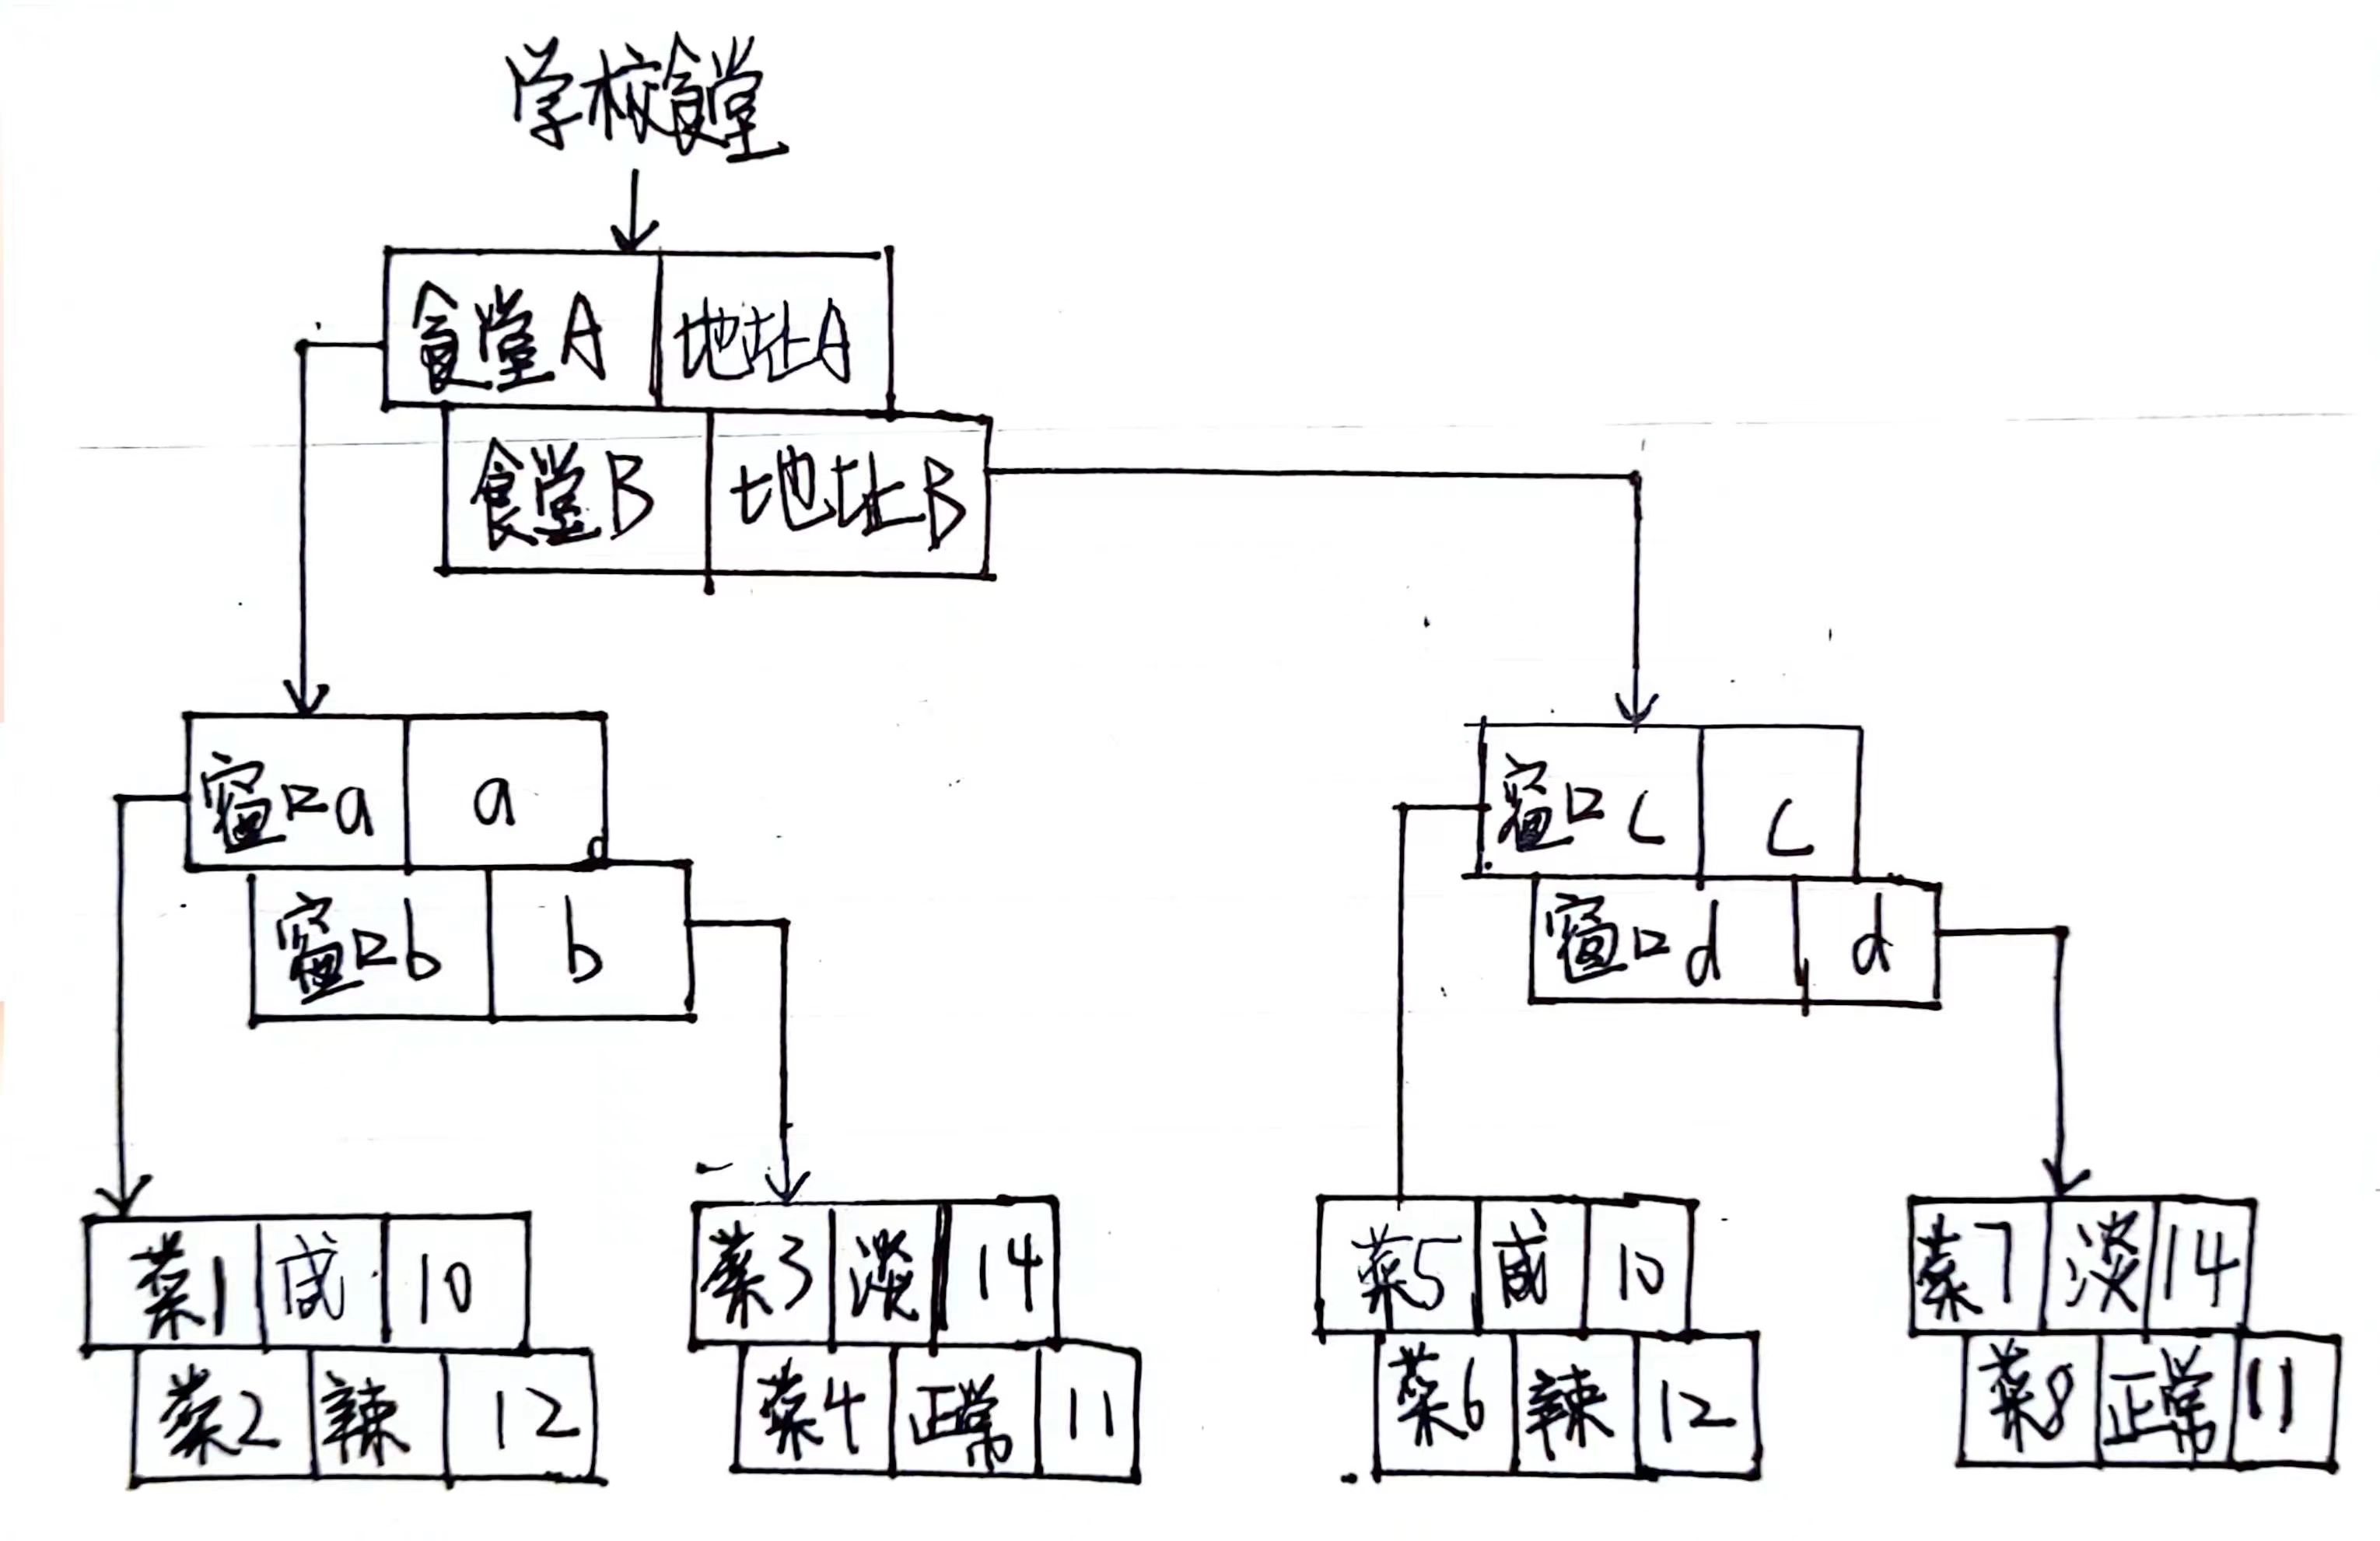 学校食堂
食堂A 地址A
食堂B 地址B
窗口a a
窗口b b
窗口c c
窗口d d
菜1 咸 10
菜2 辣 12
菜3 淡 14
菜4 正常 11
菜5 咸 10
菜6 辣 12
菜7 淡 14
菜8 正常 11